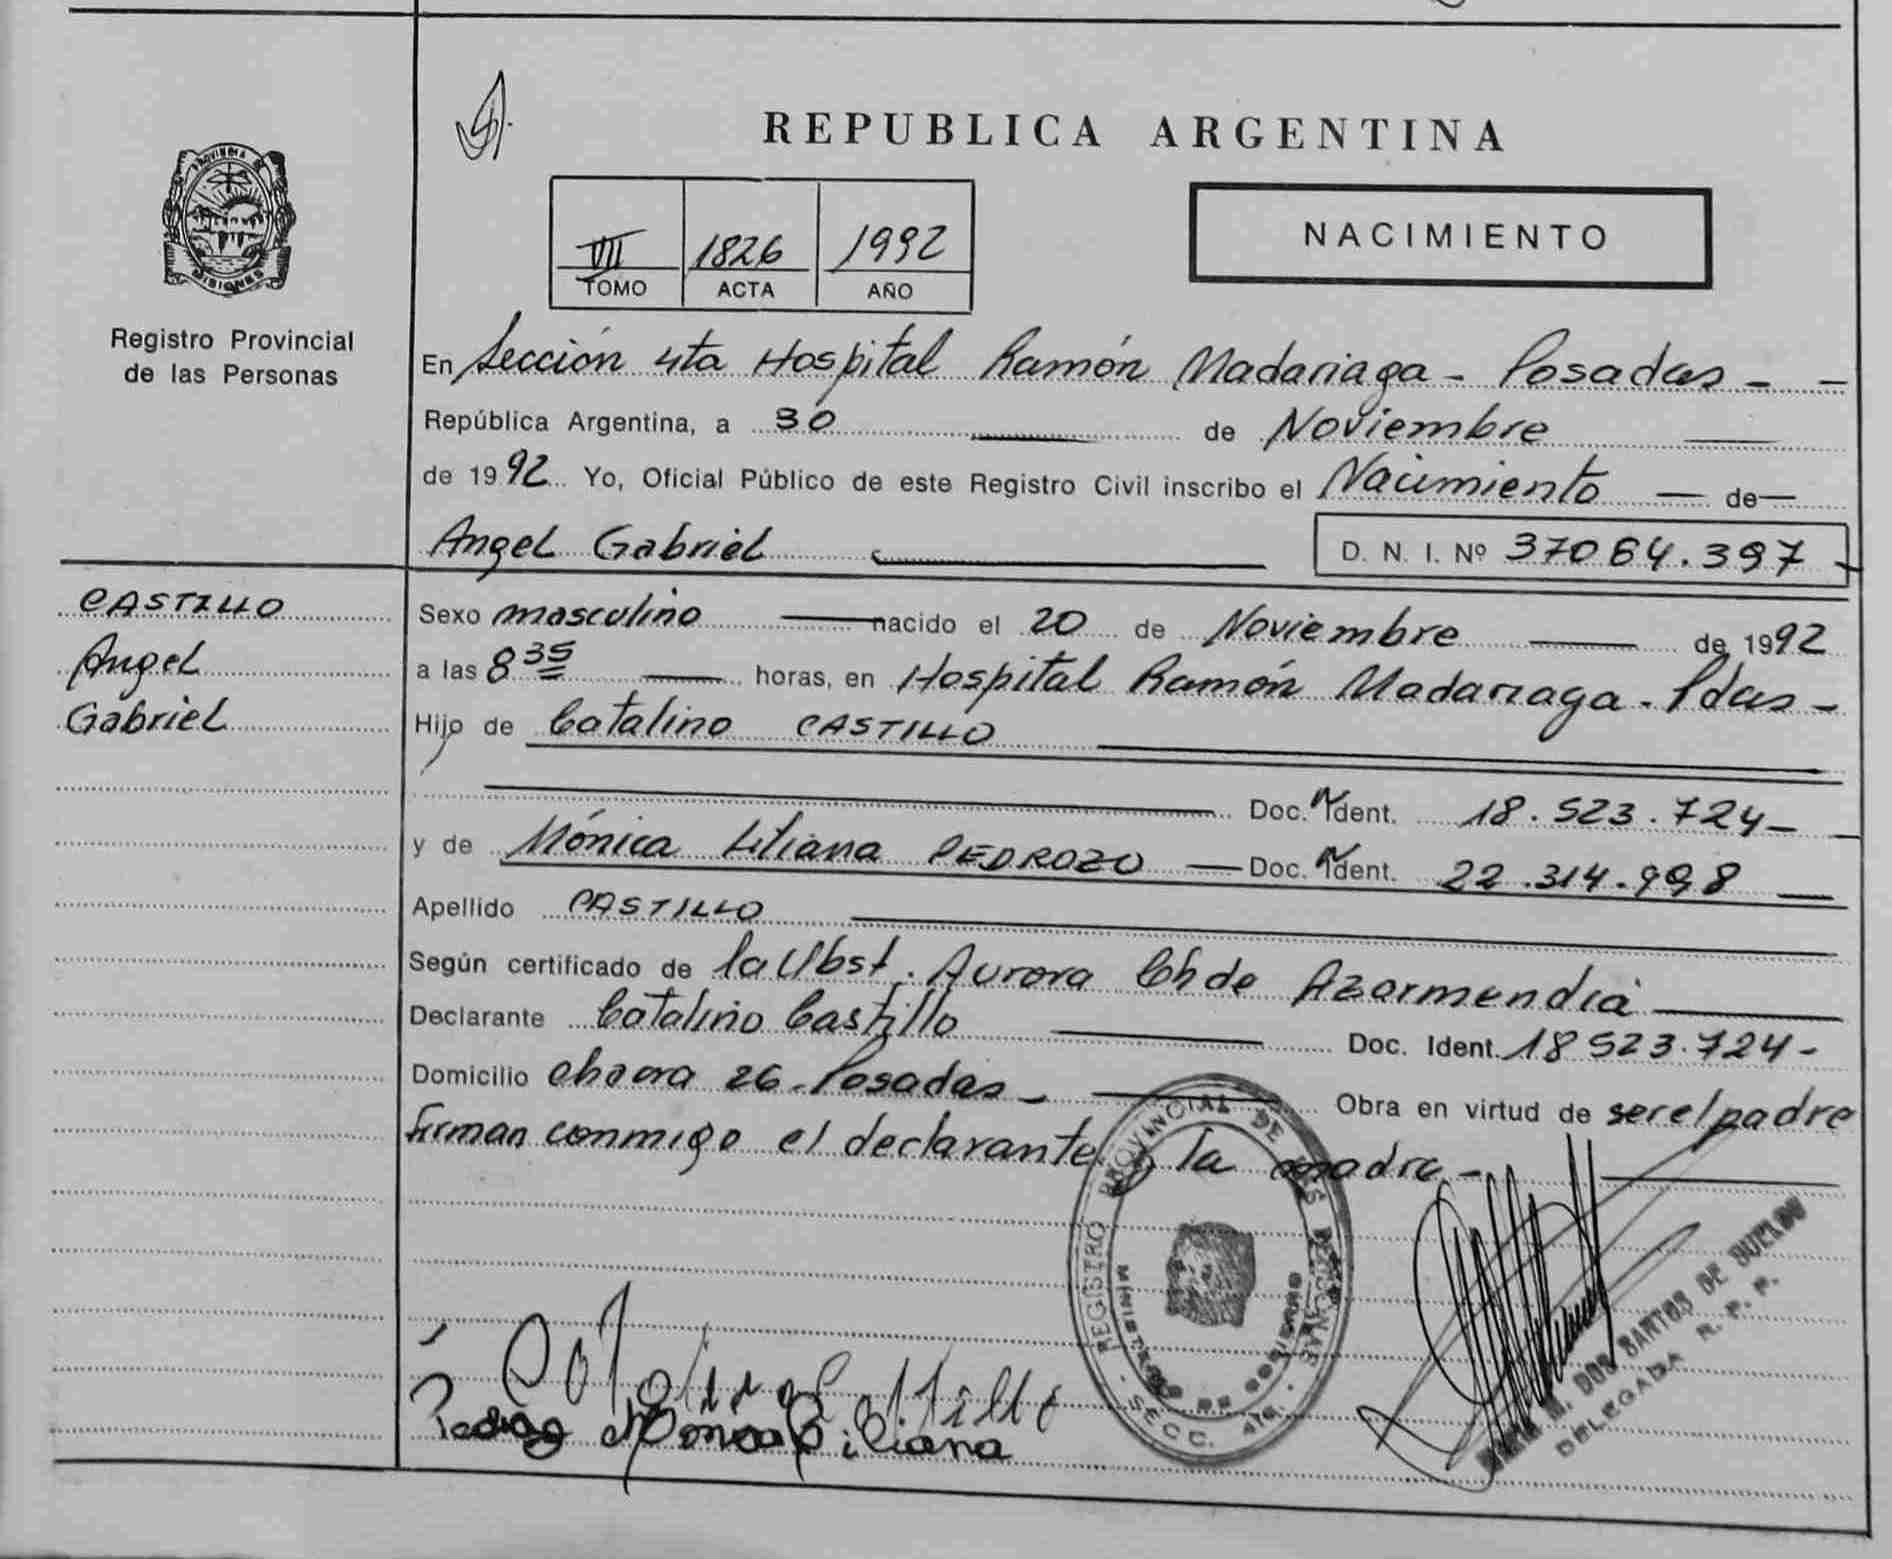 REPUBLICA ARGENTINA
PROVINCIA DE MISIONES
Registro Provincial
de las Personas
VII 1826 1992
TOMO ACTA AÑO
NACIMIENTO
En Sección 4ta Hospital Ramón Madariaga - Posadas -
República Argentina, a 30 de Noviembre
de 1992 Yo, Oficial Público de este Registro Civil inscribo el Nacimiento de
Angel Gabriel
D. N. I. Nº 37064.397
CASTILLO
Angel
Gabriel
Sexo masculino nacido el 20 de Noviembre de 1992
a las 8 35 horas, en Hospital Ramón Madariaga - Pdas -
Hijo de Catalino CASTILLO
Doc. Ident. 18.523.724-
y de Mónica Liliana PEDROZO Doc. Ident. 22.314.998
Apellido CASTILLO
Según certificado de la Obst. Aurora Ch de Azarmendia
Declarante Catalino Castillo Doc. Ident. 18523.724-
Domicilio chacra 26 - Posadas - Obra en virtud de ser el padre
Firman conmigo el declarante y la madre -
REGISTRO PROVINCIAL DE LAS PERSONAS
MINISTERIO DE GOBIERNO
- SECC. 4ta. -
Catalino Castillo
Pedrozo Monica Liliana
DOS SANTOS DE
DELEGADA R. P. P.